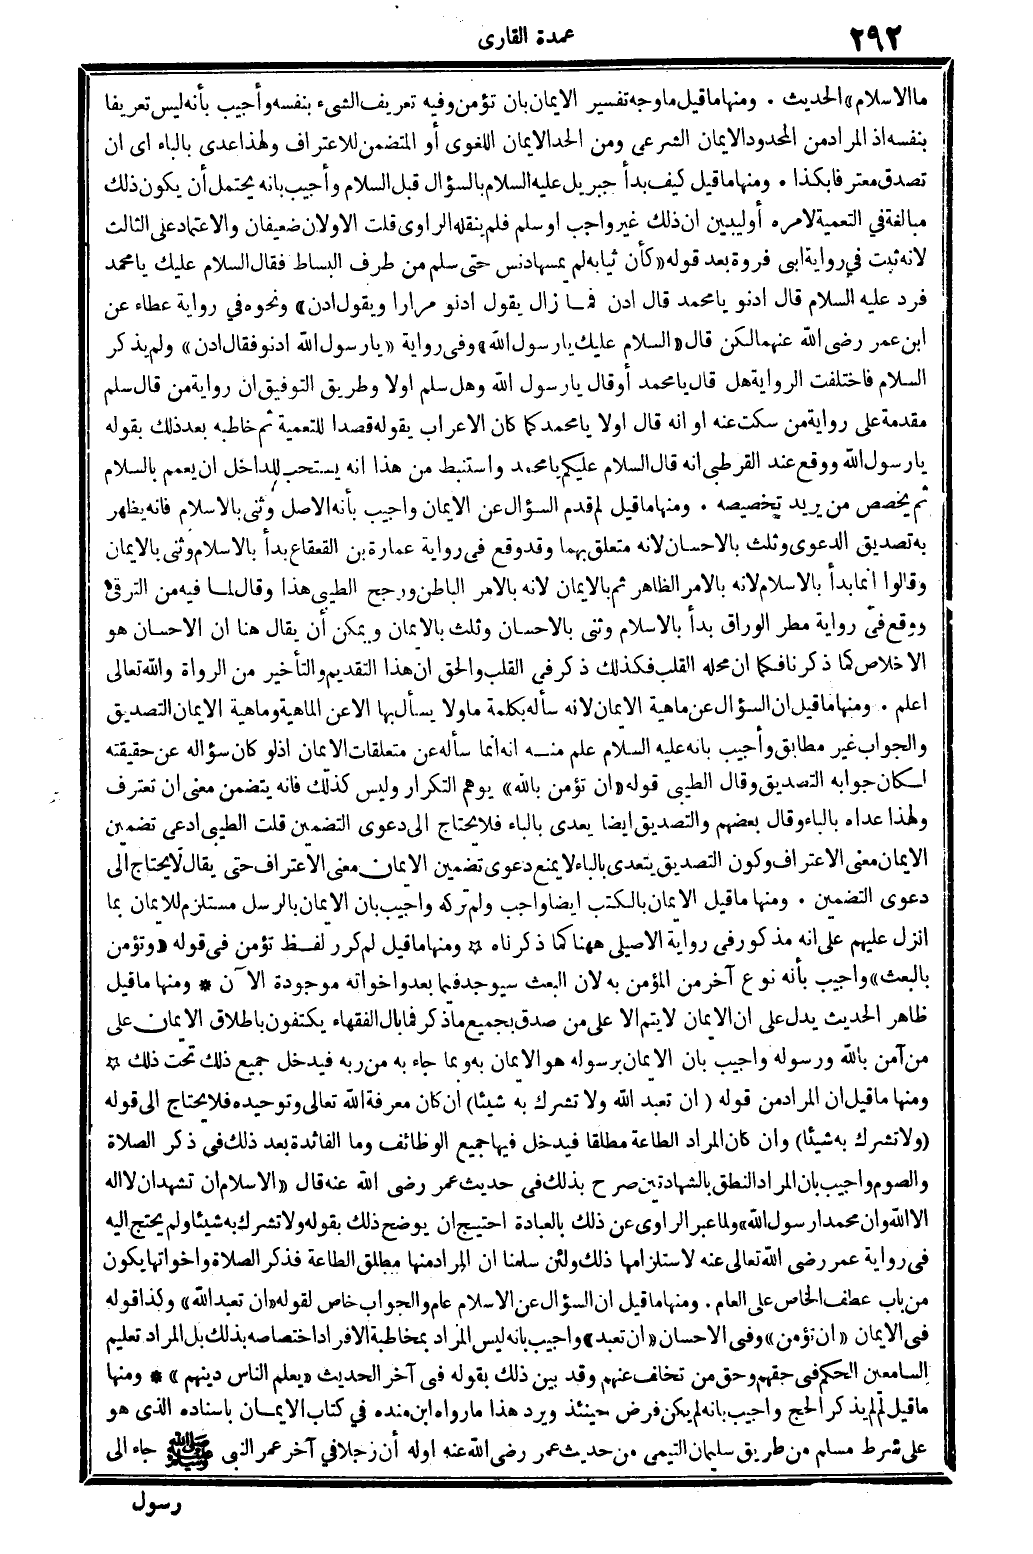 ٢٩٢
عمدة القارى
ما الاسلام» الحديث . ومنها ما قيل ما وجه تفسير الايمان بان تؤمن وفيه تعريف الشىء بنفسه وأجيب بأنه ليس تعريفا
بنفسه اذ المراد من المحدود الايمان الشرعى ومن الحد الايمان اللغوى أو المتضمن للاعتراف ولهذا عدى بالباء اى ان
تصدق معترفا بكذا . ومنها ما قيل كيف بدأ جبريل عليه السلام بالسؤال قبل السلام وأجيب بانه يحتمل أن يكون ذلك
مبالغة في التعمية لامره أوليبين ان ذلك غير واجب او سلم فلم ينقله الراوى قلت الاولان ضعيفان والاعتماد على الثالث
لانه ثبت في رواية ابى فروة بعد قوله «كأن ثيابه لم يمسها دنس حتى سلم من طرف البساط فقال السلام عليك يا محمد
فرد عليه السلام قال ادنو يا محمد قال ادن فما زال يقول ادنو مرارا ويقول ادن» ونحوه في رواية عطاء عن
ابن عمر رضى الله عنهما لكن قال «السلام عليك يا رسول الله» وفى رواية «يا رسول الله ادنو فقال ادن» ولم يذكر
السلام فاختلفت الرواية هل قال يا محمد أو قال يا رسول الله وهل سلم اولا وطريق التوفيق ان رواية من قال سلم
مقدمة على رواية من سكت عنه او انه قال اولا يا محمد كما كان الاعراب يقوله قصدا للتعمية ثم خاطبه بعد ذلك بقوله
يا رسول الله ووقع عند القرطبى انه قال السلام عليكم يا محمد واستنبط من هذا انه يستحب للداخل ان يعمم بالسلام
ثم يخصص من يريد تخصيصه . ومنها ما قيل لم قدم السؤال عن الايمان واجيب بأنه الاصل وثنى بالاسلام فانه يظهر
به تصديق الدعوى وثلث بالاحسان لانه متعلق بهما وقد وقع فى رواية عمارة بن القعقاع بدأ بالاسلام وثنى بالايمان
وقالوا انما بدأ بالاسلام لانه بالامر الظاهر ثم بالايمان لانه بالامر الباطن ورجح الطيبى هذا وقال لما فيه من الترقى
ووقع فى رواية مطر الوراق بدأ بالاسلام وثنى بالاحسان وثلث بالايمان ويمكن أن يقال هنا ان الاحسان هو
الاخلاص كما ذكرنا فكما ان محله القلب فكذلك ذكر فى القلب والحق ان هذا التقديم والتأخير من الرواة والله تعالى
اعلم . ومنها ما قيل ان السؤال عن ماهية الايمان لانه سأله بكلمة ما ولا يسأل بها الا عن الماهية وماهية الايمان التصديق
والجواب غير مطابق وأجيب بانه عليه السلام علم منه انه انما سأله عن متعلقات الايمان اذلو كان سؤاله عن حقيقته
لكان جوابه التصديق وقال الطيبى قوله «ان تؤمن بالله» يوهم التكرار وليس كذلك فانه يتضمن معنى ان تعترف
ولهذا عداه بالباء وقال بعضهم والتصديق ايضا يعدى بالباء فلا يحتاج الى دعوى التضمين قلت الطيبى ادعى تضمين
الايمان معنى الاعتراف وكون التصديق يتعدى بالباء لا يمنع دعوى تضمين الايمان معنى الاعتراف حتى يقال لا يحتاج الى
دعوى التضمين . ومنها ما قيل الايمان بالكتب ايضا واجب ولم تركه واجيب بان الايمان بالرسل مستلزم للايمان بما
انزل عليهم على انه مذكور فى رواية الاصيلى ههنا كما ذكرناه ☆ ومنها ما قيل لم كرر لفظ تؤمن فى قوله «وتؤمن
بالبعث» واجيب بأنه نوع آخر من المؤمن به لان البعث سيوجد فيما بعد واخواته موجودة الآن * ومنها ما قيل
ظاهر الحديث يدل على ان الايمان لا يتم الا على من صدق بجميع ما ذكر فما بال الفقهاء يكتفون باطلاق الايمان على
من آمن بالله ورسوله واجيب بان الايمان برسوله هو الايمان به وبما جاء به من ربه فيدخل جميع ذلك تحت ذلك ☆
ومنها ما قيل ان المراد من قوله ( ان تعبد الله ولا تشرك به شيئا) ان كان معرفة الله تعالى وتوحيده فلا يحتاج الى قوله
(ولا تشرك به شيئا) وان كان المراد الطاعة مطلقا فيدخل فيها جميع الوظائف وما الفائدة بعد ذلك فى ذكر الصلاة
والصوم واجيب بان المراد النطق بالشهادتين صرح بذلك فى حديث عمر رضى الله عنه قال «الاسلام ان تشهد ان لا اله
الا الله وان محمدا رسول الله» ولما عبر الراوى عن ذلك بالعبادة احتيج ان يوضح ذلك بقوله ولا تشرك به شيئا ولم يحتج اليه
فى رواية عمر رضى الله تعالى عنه لاستلزامها ذلك ولئن سلمنا ان المراد منها مطلق الطاعة فذكر الصلاة واخواتها يكون
من باب عطف الخاص على العام . ومنها ما قيل ان السؤال عن الاسلام عام والجواب خاص لقوله «ان تعبد الله» وكذا قوله
فى الايمان «ان تؤمن» وفى الاحسان «ان تعبد» واجيب بانه ليس المراد بمخاطبة الافراد اختصاصه بذلك بل المراد تعليم
السامعين الحكم فى حقهم وحق من تخلف عنهم وقد بين ذلك بقوله فى آخر الحديث «يعلم الناس دينهم» * ومنها
ما قيل لم لم يذكر الحج واجيب بانه لم يكن فرض حينئذ ويرد هذا ما رواه ابن منده في كتاب الايمان باسناده الذى هو
على شرط مسلم من طريق سليمان التيمى من حديث عمر رضى الله عنه اوله أن رجلا في آخر عمر النبى ﷺ جاء الى
رسول